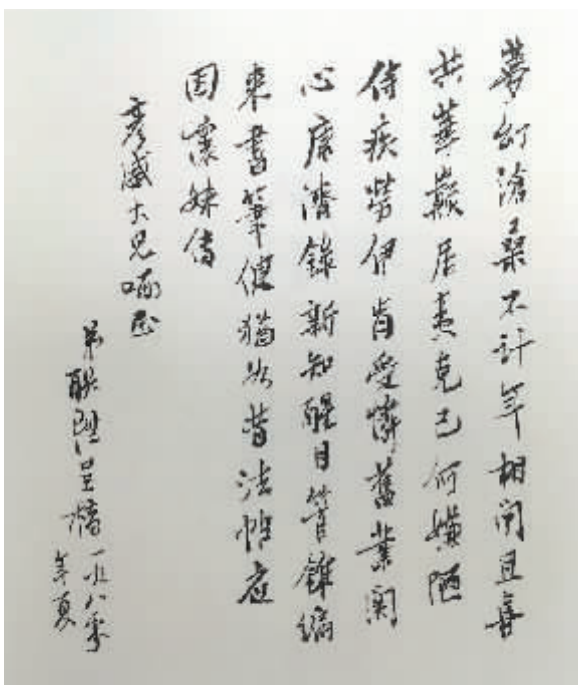 夢幻滄桑不計年相聞且喜
共華巔居夷克己何嫌陋
侍疾勞伊肯受憐舊業関
心康濟錄新知醒目管錐編
來書筆健猶如昔法帖應
因妹傳
彥威大兄哂正
弟聯陞呈稿
一九八
年夏